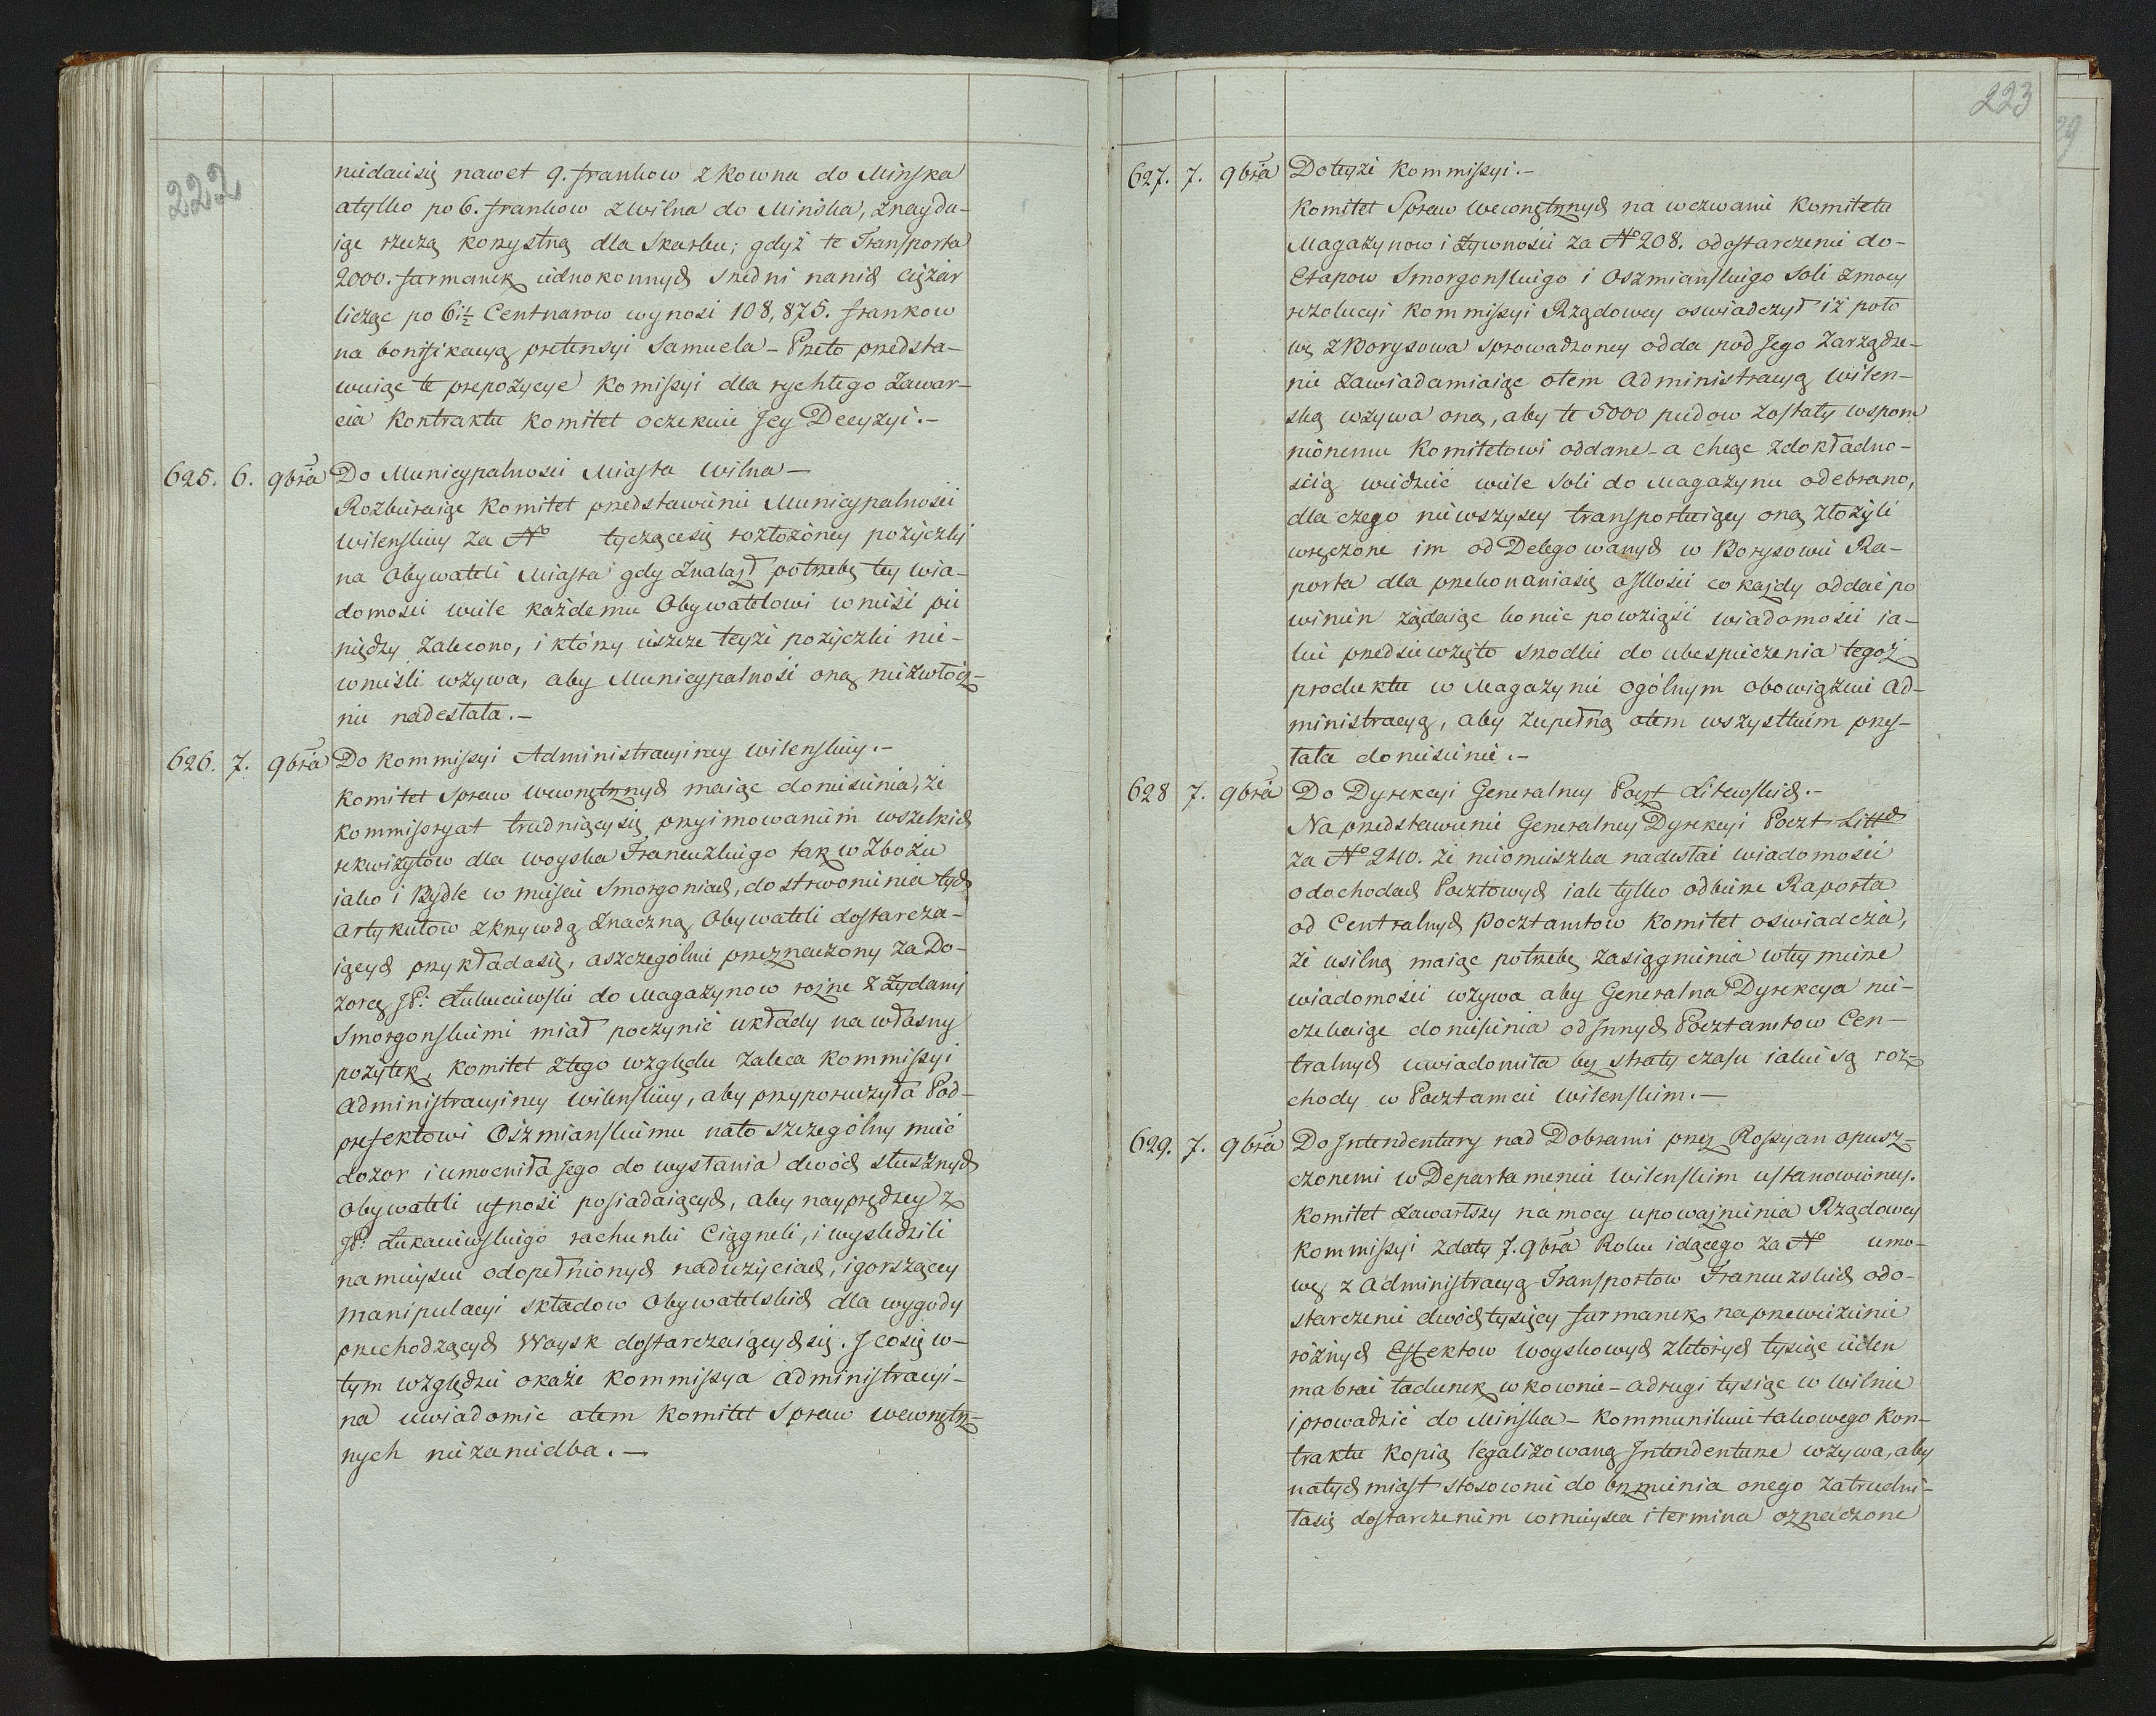 222
niedaiesię nawet 9. frankow z Kowna do Minska
atylko po 6. frankow z Wilna do Minska, znaydu-
iąc rzeczą korzystną dla Skarbu; gdyż te Transporta
2000. furmanek iednokonnych średni nanich ciężar
licząc po 6 1/2 Centnarow wynosi 108,875. frankow
na bonifikacyą pretensyi Samuela – Przeto przedsta-
wuiąc te prepozycye Komissyi dla rychłego zawar-
cia Kontraktu Komitet oczekuie Jey Decyzyi.–
625. 6. 9bra Do Municypalnosci Miasta Wilna –
Rozbieraiąc Komitet przedstawienie Municypalnosci
Wilenskiey za No tyczącesię rozłożoney pożyczki
na Obywateli Miasta gdy znalazł potrzebę tey wia-
domosci wiele każdemu Obywatelowi wnieść pie
niędzy zalecono, i którzy ieszcze teyże pożyczki nie-
wnieśli wzywa, aby Municypalność oną niezwłocz-
nie nadesłała.–
626. 7. 9bra Do Kommissyi Administracyiney Wilenskiey.–
Komitet Spraw Wewnętrznych maiąc doniesienia, że
Kommissoryat trudniącysię przyimowaniem wszelkich
rekwizytow dla woyska Francuzkiego tak w Zbożu
iako i Bydle w mieście Smorgoniach, do strwonienia tych
artykułow z krzywdą znaczną Obywateli dostarcza-
iących przykładasię, aszczególnie przeznaczony za Do-
zorcę JP: Łukaciewski do Magazynow rożne z Żydami
Smorgonskiemi miał poczynić układy na własny
pożytek, Komitet z tego względu zaleca Kommissyi
Administracyiney Wilenskiey, aby przyporuczyła Pod-
prefektowi Oszmianskiemu nato szczególny mieć
dozor i umocniła Jego do wysłania dwóch słusznych
Obywateli ufność posiadaiących, aby nayprędzey z
JP: Łukaciewskiego rachunki Ciągneli, i wysledzili
na mieyscu odopełnionych nadużyciach, i gorszącey
manipulacyi składow Obywatelskich dla wygody
przechodzących Woysk dostarczaiącychsię. J cosię w-
tym względzie okaże Kommissya Administracyi-
na uwiadomić otem Komitet Spraw Wewnętrz-
nych niezaniedba.–
223
627. 7. 9bra Doteyże Kommissyi.–
Komitet Spraw Wewnętrznych na wezwanie Komitetu
Magazynow i Żywności za No 208. odostarczenie do-
Etapow Smorgonskiego i Oszmianskiego Soli zmocy
rezolucyi Kommissyi Rządowey oswiadczył iż poło
wę z Borysowa sprowadzoney odda pod Jego Zarządze-
nie zawiadamiaiąc otem Administracyą Wilen-
ską wzywa oną, aby te 5000 pudow zostały wspom
nionemu Komitetowi oddane – a chcąc zdokładno-
ścią wiedzieć wiele Soli do Magazynu odebrano,
dla czego niewszyscy transportuiący oną złożyli
wręczone im od Delegowanych w Borysowie Ra-
porta dla przekonaniasię oIlości co każdy oddać po
winien żądaiąc koniec powziąść wiadomości ia-
kie przedsiewzięto srzodki do ubespieczenia tegoż
produktu w Magazynie ogólnym obowiązuie Ad-
ministracyą, aby zupełną otem wszystkiem przy-
łała doniesienie.–
628 7. 9bra Do Dyrekcyi Generalney Poczt Litewskich.–
Na przedstawienie Generalney Dyrekcyi Poczt Littch
za No 240. że nieomieszka nadesłać wiadomości
odochodach Pocztowych iak tylko odbierze Raporta
od Centralnych Pocztamtow Komitet oswiadcza,
że usilną maiąc potrzebę zasiągnienia wtey mierze
wiadomości wzywa aby Generalna Dyrekcya nie-
czekaiąc doniesienia od Jnnych Pocztamtow Cen-
tralnych uwiadomiła bez straty czasu iakie są roz-
chody w Pocztamcie Wilenskim.–
629. 7. 9bra Do Jntendentury nad Dobrami przez Rossyan opusz-
czonemi w Departamencie Wilenskim ustanowioney.
Komitet zawarłszy na mocy upoważnienia Rządowey
Kommissyi zdaty 7. 9bra Roku idącego za No umo-
wę z Administracyą Transportow Francuzskich odo-
starczenie dwóch tysięcy furmanek na przewiezienie
różnych Effektow woyskowych z których tysiąc ieden
mabrać ładunek w Kownie – adrugi tysiąc w Wilnie
i prowadzić do Mińska – Kommunikuie takowego Kon-
traktu Kopią legalizowaną Jntendenturze wzywa, aby
natychmiast stosownie do brzmienia onego zatrudni-
łasię dostarczeniem wmieysca i termina oznaczone